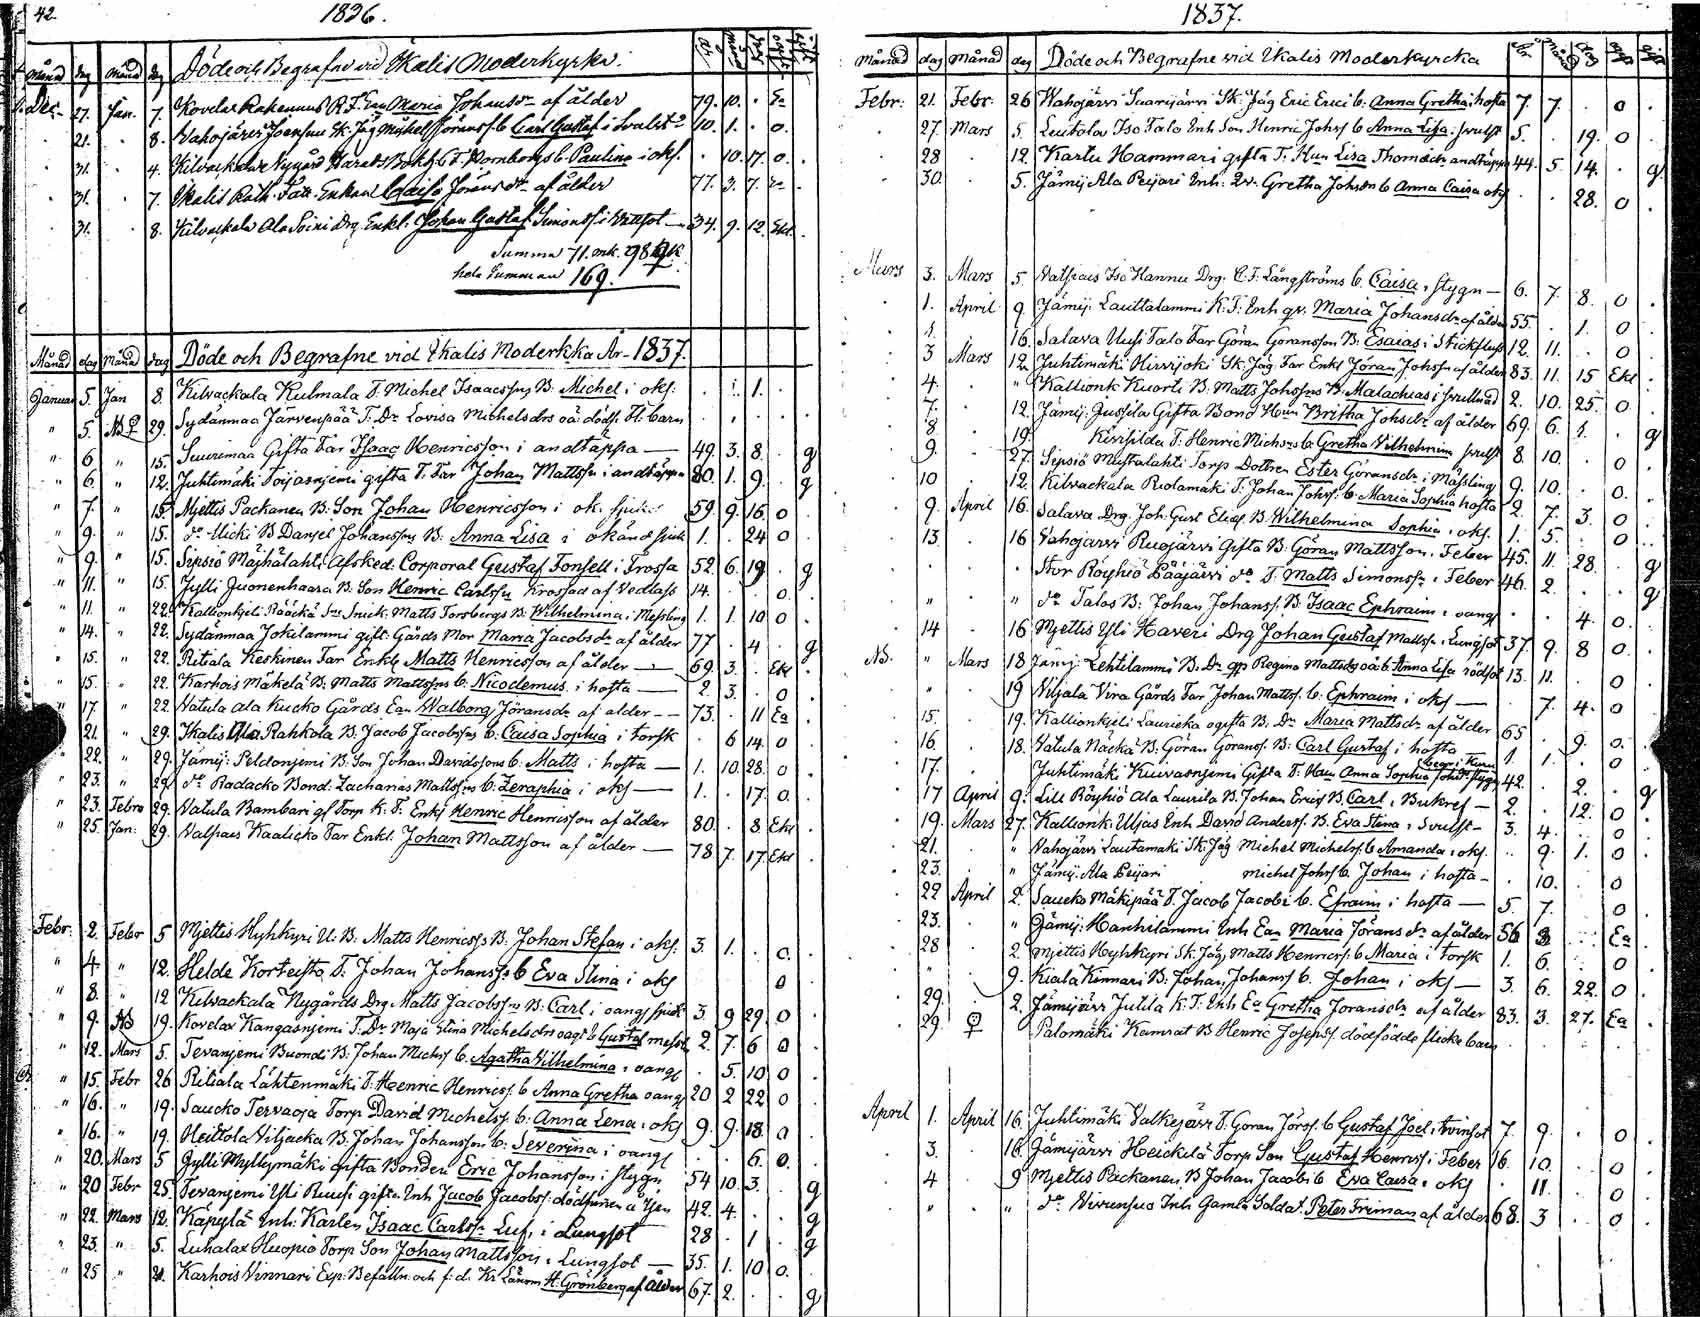 42.
1836.
Månad dag Månad dag Döde och Begrafne vid Ikalis Moderkyrka. År Månad dag
Dec. 27. Jan. 7. Kovelax Rakennus R. F. Ean Maria Johansdr af ålder 79. 10. . Ea
. 21. . 8. Vahojärvi Sk. Jäg Michel Göranss. b Carl Gustaf i 10. 1. . o.
. 31. . 4. Kilvackala Nygård b. Paulina i oks. . 10. 17. o.
. 31. . 7. Ikalis Enkan Caisa Göransdr af ålder 77. 3. 7. Ea
. 31. . 8. Kilvackala Ala Soini Drg Enkl. Johan Gustaf Simonss. i 34. 9. 12. Ekl.
Summa 71. mk. 98 qk
hela Summan 169.
Månad dag Månad dag Döde och Begrafne vid Ikalis Moderkka År 1837.
Januari 5. Jan 8. Kilvackala Kulmala T. Michel Isaacssons B. Michel i oks: . 1. 1.
" 5. NB ♀ 29. Sydänmaa Järvenpää T. Dr Lovisa Michelsdrs oä. dödf. fl. barn
" 6 " 15. Suurimaa Gifta Far Isaac Henricsson i andtäppa 49. 3. 8. . g
" 6. " 12. Juhtimäki gifta T. Far Johan Mattssn i andtäppa 80. 1. 9. . g
" 7. " 15. Mjettis Packanen B: Son Johan Henricsson i ok. 59. 9. 16. o
" 9. " 15. do Micki B Daniel Johanssons B: Anna Lisa i okänd sjuk 1. . 24 o
" 9 " 15. Sipsiö Majhälahti Afsked. Corporal Gustaf Fonsell i Frossa 52. 6. 19 . g
" 11. " 15. Jylli Juonenhaara B. Son Henric Carlssn Krossad af Vedlass 14. . . o.
" 11. " 22. Kallionkjeli Rääckä Matts Forsbergs B: Wilhelmina i Messling 1. 1. 10 o
" 14. " 22. Sydänmaa Jokilammi gift. Gårds Mor Maria Jacobsdr af ålder 77 . 4. . g
" 15. " 22. Ritiala Keskinen Far Enkl Matts Henricsson af ålder 69. 3. . Ekl
" 15. " 22. Karhois Mäkelä B: Matts Mattssons b. Nicodemus i hosta 2. 3. . o
" 17. " 22 Vatula Ala Kucko Gårds Ean Walborg Jöransdr af ålder 73. . 11 Ea
" 21. " 29. Ikalis Ala Rahkola B. Jacob Jacobssons b: Caisa Sophia i torsk . 6 14. o
" 22. " 29. Jämij: Peldonjemi B: Son Johan Davidssons b: Matts i hosta 1. 10. 28. o
" 23. " 29. do Radacko Bond. Zacharias Mattssons b. Zeraphia i oks 1. . 17. o.
" 23. Febru 29. Vatula Bambari gl Torp K. F. Enkl Henric Henricsson af ålder 80. . 8 Ekl
" 25. Jan: 29. Valpais Kaalicko Far Enkl. Johan Mattsson af ålder 78 7. 17. Ekl
Febr: 2. Febr 5 Mjettis Kyhkyri U: B: Matts Henricss B: Johan Stefan i oks: 3. 1. . o.
" 4. " 12. Helde Korteista T. Johan Johansss b Eva Stina i oks o
" 8. " 12 Kilvackala Nygårds Drg Matts Jacobssns B: Carl i oang sjuk 3. 9 29. o
" 9. NB 19. Kovelax Kangasnjemi T: Dr Maja Stina Michelsdrs b Gustaf 2 7 6 o
" 12. Mars 5. Tevanjemi Buondi B: Johan Michss b. Agatha Wilhelmina i oangs . 5. 10 o
" 15. Febr 26 Ritiala Lähtenmäki T: Henric Henricss. b Anna Gretha oangs 20 2 22 o
" 16. " 19. Saucko Tervaoja Torp David Michelss b: Anna Lena i oks 9. 9. 18. o
" 16. " 19. Heitola Viljacka B. Johan Johansson b: Severina i oangs . . 6. o.
" 20. Mars 5 Jylli Myllymäki gifta Bonden Eric Johansson i stygn 54 10. 3. . g
" 20 Febr 25. Tevanjemi Yli Ruusi gifta Inh Jacob Jacobss: dödfunnen å 42. 4. . . g
" 22. Mars 12. Käpylä Inh: Karlen Isaac Carlssn i Lungsot 28 . 1 . g
" 23. " 5. Luhalax Huopio Torp Son Johan Mattsson i Lungsot 35. 1. 10 o.
" 25 " 21. Karhois Vinnari Exp. Befalln: och f: d. Kr. Länsm H. Grönberg af Ålder 67. 2. . . g
1837.
Månad dag Månad dag Döde och Begrafne vid Ikalis Moderkyrcka År Månad dag ogift gift
Febr: 21. Febr. 26 Wahojärvi Suurijärvi Sk: Jäg Eric Erici b: Anna Gretha i hosta 7. 7. . o
. 27. Mars 5. Leutola Iso Talo Inh Son Henric Johss b Anna Lisa i svulst 5. . 19. o
. 28 . 12. Kartu Hammari gifta T: Hun Lisa Thomædr andtäppa 44. 5 14. . g
. 30. . 5. Jämij Ala Peijari Inh: Gretha Johssn b Anna Caisa oks . . 28. o
Mars 3. Mars 5. Vatsiais Iso Hannu Drg. C. F. Långströms b. Caisa i stygn 6. 7. 8. o
. 1. April 9. Jämij: Lauttalammi K. F: Inh gv. Maria Johansdr af ålder 55. . 1. o
16. Salava Uusi Talo Far Göran Göransson B: Esaias i Stickfluss 12. 11. . o
. 3 Mars 12. Juhtimäki Hirvijoki Sk. Jäg: Far Enkl Jöran Johssn af ålder 83. 11. 15 Ekl
. 4. . " Kallionk Kuorti B. Matts Johssns B. Malachias i 2. 10. 25. o
. 7. . 12. Jämij: Jussila Gifta Bond Hun Britha Johsdr af ålder 69. 6. 1. . g
. 8 . 19. Kivisilda T. Henric Michsns b. Gretha Wilhelmina svulst 8. 10. . o
. 9. . 27. Sipsiö Mustalahti Torp Dottren Ester Göransdr i Mässling 9. 10. . o.
10 . 12. Kilvackala Rudamäki T: Johan Johss: b. Maria Sophia hosta 2. 7. 3. o
. 9. April 16. Salava Drg. Joh: Gust Elias. B. Wilhelmina Sophia i oks. 1. 5. . o
. 13. . 16 Vahojärvi Ruojärvi Gifta B: Göran Mattsson i Feber 45. 11 28. . g
Stor Röyhiö Pääjärvi do T. Matts Simonssn i Feber 46. 2. . . g
" " do Talos B: Johan Johanss. B: Isaac Ephraim i oangs . . 4. o
14 . 16 Mjettis Yli Haveri Drg Johan Gustaf Mattssn i Lungsot 37. 9. 8 o
NB. " Mars 18 Jämij: Lehtilammi B. Dr Regina Mattsdrs oä: b. Anna Lisa rödsot 13. 11. . o
" 19 Viljala Vira Gårds Far Johan Mattss. b: Ephraim i oks . 7. 4. o
15. . 19. Kallionkjeli Lauricka ogifta B. Dr Maria Mattsdr af ålder 65 . 9. o.
16. . 18. Vatula Näckä B: Göran Göranss. B: Carl Gustaf i hosta 1. 1. . o
17. . Juhtimäki Kuivasnjemi Gifta T: Hun Anna Sophia stygn 42. . 2. . g
begr i Kuru
17 April 9. Lill Röyhiö Ala Laurila B. Johan Erics B. Carl i Bukref 2. . 12. o
19. Mars 27. Kallionk: Uljas Inh David Anderss. B. Eva Stina i Svulst 3. 4. . o
21. . " Vahojärvi Lautamäki Sk: Jäg Michel Michelss: b Amanda i oks. .. 9. 1. o
23. " Jämij: Ala Peijari Michel Johss b. Johan i hosta . 10. . o
22 April 2. Saucko Mäkipää T. Jacob Jacobi b. Efraim i hosta 5. 7. . o
23. . " Jämij: Hanhilammi Inh Ean Maria Jörans dr af ålder 56 3. .. Ea
. 28 . 2. Mjettis Kyhkyri Sk. Jäg Matts Henricss: b Maria i torsk 1. 6. . o
" . 9. Kiala Kinnari B. Johan Johanss b. Johan i oks 3. 6. 22. o
29. . 2. Jämijärvi Jutila K. F. Inh Ea Gretha Joransdr af ålder 83. 3. 27. Ea
29 ♀ Palomäki Kamrat B Henric Josephss. dödfödde flickebarn
April 1. April 16. Juhtimäki Valkejärvi T. Göran Jörss. b Gustaf Joel i tvinsot 7. 9. . o
3. 16. Jämijärvi Heickilä Torp Son Gustaf Henrics. i Feber 16. 10. . o
4 . 9 Mjettis Packanen B Johan Jacobi b Eva Caisa i oks . 11. . o
" " do Inh Gamla Soldat. Peter Friman af ålder 68. 3 . o